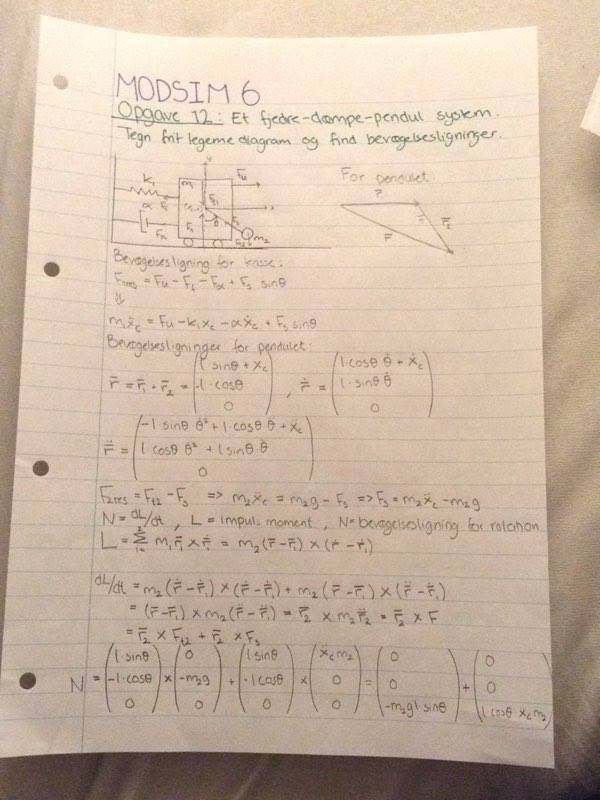 MODSIM 6
Opgave 12: Et fjedre-dæmpe-pendul system.
Tegn frit legeme diagram og find bevægelsesligninger.
For pendulet
K₁ m₁ Fu
α x
θ m₂
r̄₁
r̄₂
r̄
Bevægelsesligning for kasse:
F₁res = Fu - F₁ - Fα + F₃ sinθ
⇓
m₁ẍc = Fu - k₁xc - αẋc + F₃ sinθ
Bevægelsesligninger for pendulet:
r̄ = r̄₁ + r̄₂ = (l sinθ + xc, -l·cosθ, 0), ṙ̄ = (l·cosθ θ̇ + ẋc, l·sinθ θ̇, 0)
r̄̈ = (-l·sinθ θ̇² + l·cosθ θ̈ + ẍc, l cosθ θ̇² + l sinθ·θ̈, 0)
F₂res = Ft2 - F₃ => m₂ẍc = m₂g - F₃ => F₃ = m₂ẍc - m₂g
N = dL/dt , L = impuls moment , N = bevægelsesligning for rotation
L = Σ mᵢ r̄ᵢ × ṙ̄ᵢ = m₂(r̄ - r̄₁) × (ṙ - ṙ̄₁)
dL/dt = m₂(ṙ̄ - ṙ̄₁) × (ṙ̄ - ṙ̄₁) + m₂(r̄ - r̄₁) × (r̄̈ - r̄̈₁)
= (r̄ - r̄₁) × m₂(r̄̈ - r̄̈₁) = r̄₂ × m₂r̄̈₂ = r̄₂ × F
= r̄₂ × Ft2 + r̄₂ × F₃
N = (l·sinθ, -l·cosθ, 0) × (0, -m₂g, 0) + (l sinθ, -l cosθ, 0) × (ẍc m₂, 0, 0) = (0, 0, -m₂gl sinθ) + (0, 0, l cosθ ẍc m₂)